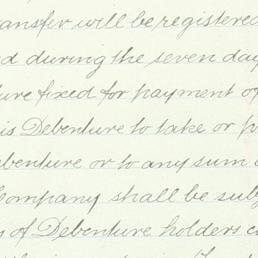 ansfer will be registered
d during the seven day
ure fixed for payment of
is Debenture to take or p
ebenture or to any sum
Company shall be subj
s of Debenture holders c